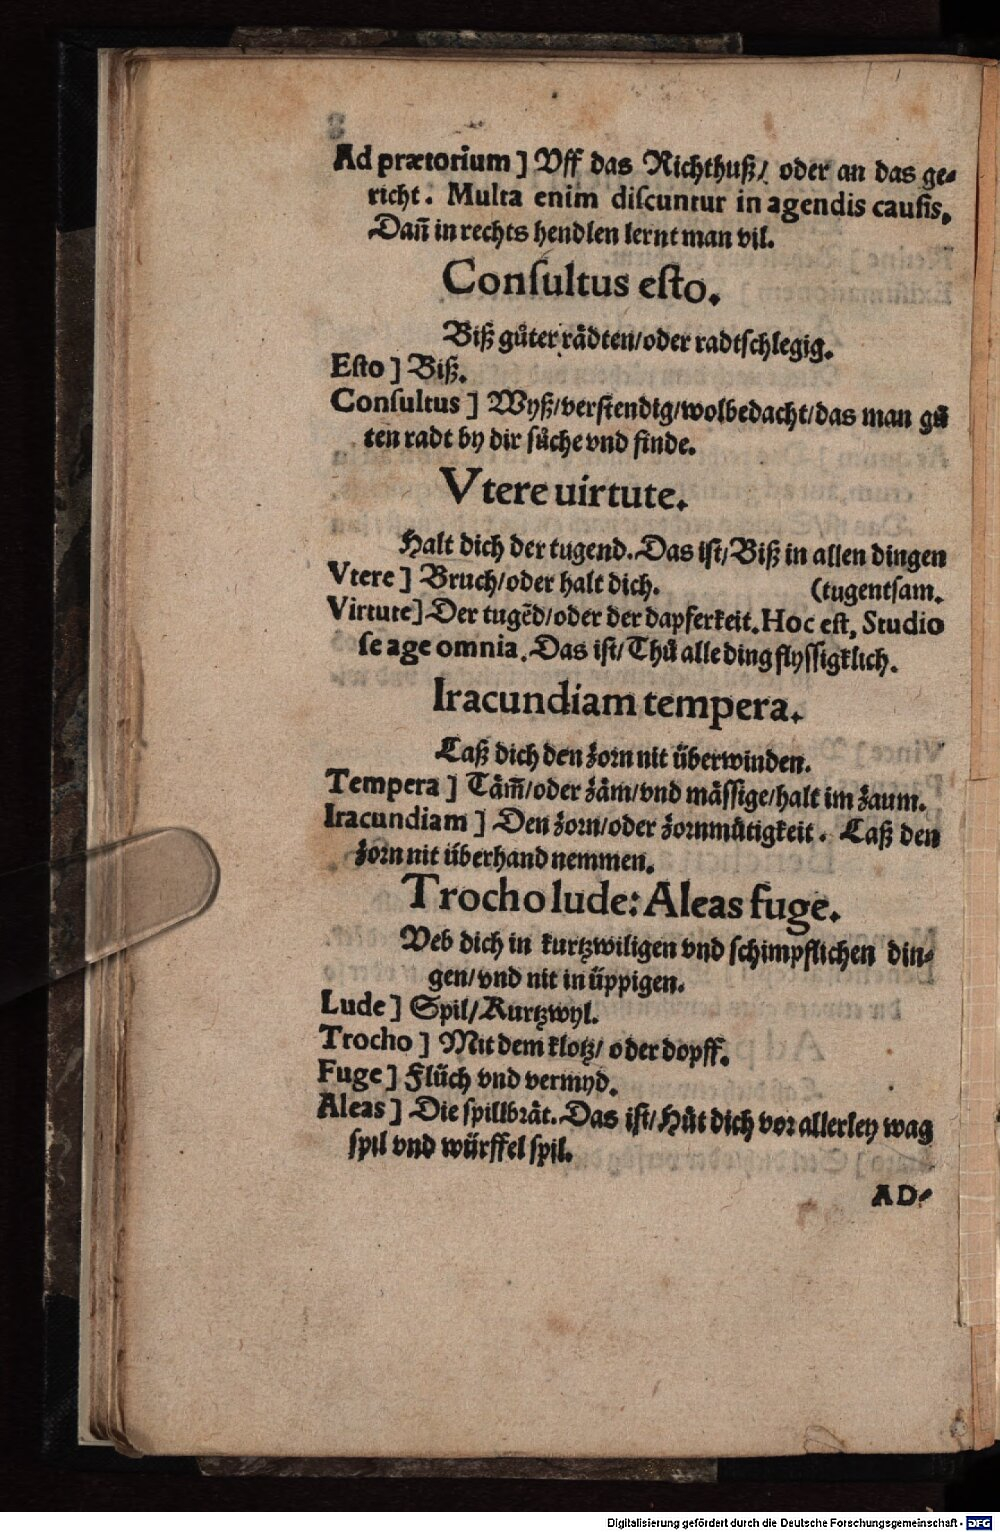 Ad prætorium ] Vff das Richthuß/ oder an das ge⸗
richt. Multa enim diſcuntur in agendis cauſis.
Dañ in rechts hendlen lernt man vil.
Conſultus eſto.
Biß gůter rädten/oder radtſchlegig.
Eſto ] Biß.
Conſultus ] Wyß/verſtendig/wolbedacht/das man gů
ten radt by dir ſůche vnd finde.
Vtere uirtute.
Halt dich der tugend. Das iſt/ Biß in allen dingen
Vtere ] Bruch/oder halt dich. (tugentſam.
Virtute] Der tugẽd/oder der dapferkeit. Hoc eſt, Studio
ſe age omnia. Das iſt/ Thů alle ding flyſſigklich.
Iracundiam tempera.
Laß dich den zorn nit überwinden.
Tempera ] Täm̃/oder zäm/vnd mäſſige/halt im zaum.
Iracundiam ] Den zorn/oder zornmůtigkeit. Laß den
zorn nit überhand nemmen.
Trocho lude: Aleas fuge.
Veb dich in kurtzwiligen vnd ſchimpflichen din⸗
gen/vnd nit in üppigen.
Lude ] Spil/Kurtzwyl.
Trocho ] Mit dem klotz/ oder dopff.
Fuge ] Flüch vnd vermyd.
Aleas ] Die ſpillbrät. Das iſt/ Hůt dich vor allerley wag
ſpil vnd würffel ſpil.
AD⸗
Digitalisierung gefördert durch die Deutsche Forschungsgemeinschaft - DFG